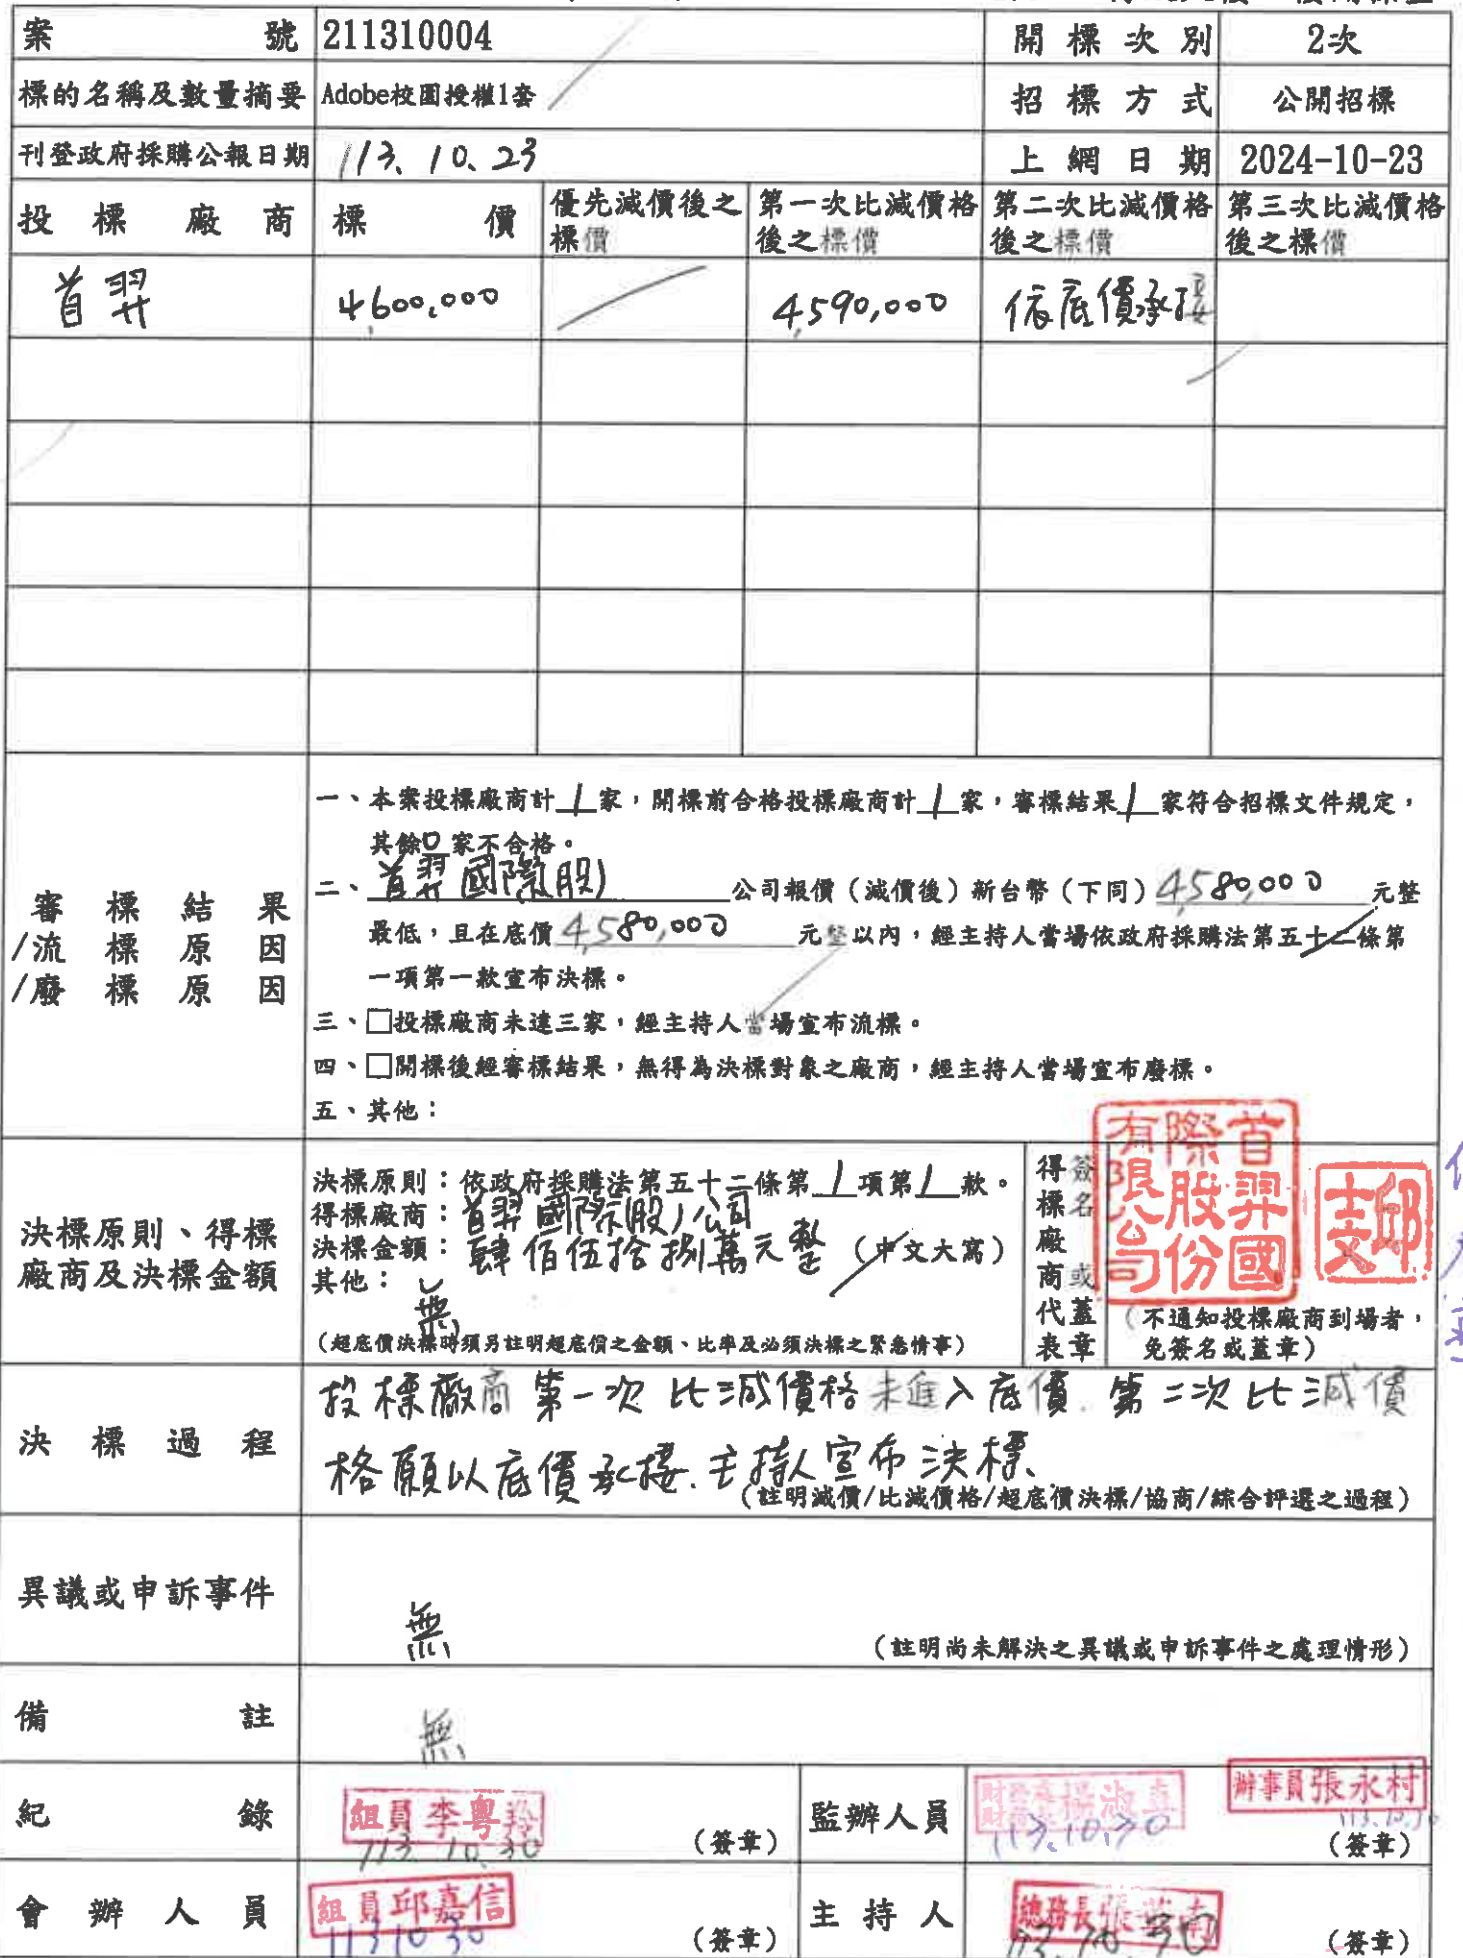 案號 211310004 開標次別 2次
標的名稱及數量摘要 Adobe校園授權1套 招標方式 公開招標
刊登政府採購公報日期 113.10.23 上網日期 2024-10-23
投標廠商 標價 優先減價後之標價 第一次比減價格後之標價 第二次比減價格後之標價 第三次比減價格後之標價
首羿 4,600,000 4,590,000 依底價承接
審標結果
/流標原因
/廢標原因
一、本案投標廠商計1家，開標前合格投標廠商計1家，審標結果1家符合招標文件規定，
其餘0家不合格。
二、首羿國際(股)公司報價（減價後）新台幣（下同）4,580,000元整
最低，且在底價4,580,000元整以內，經主持人當場依政府採購法第五十二條第
一項第一款宣布決標。
三、□投標廠商未達三家，經主持人當場宣布流標。
四、□開標後經審標結果，無得為決標對象之廠商，經主持人當場宣布廢標。
五、其他：
決標原則、得標
廠商及決標金額
決標原則：依政府採購法第五十二條第1項第1款。
得標廠商：首羿國際(股)公司
決標金額：肆佰伍拾捌萬元整（中文大寫）
其他：無
（超底價決標時須另註明超底價之金額、比率及必須決標之緊急情事）
得標廠商代表
簽名或蓋章
首羿國際股份有限公司
（不通知投標廠商到場者，
免簽名或蓋章）
決標過程
投標廠商第一次比減價格未進入底價.第二次比減價
格願以底價承接.主持人宣布決標.
（註明減價/比減價格/超底價決標/協商/綜合評選之過程）
異議或申訴事件
無
（註明尚未解決之異議或申訴事件之處理情形）
備註
無
紀錄 組員李粵羚 113.10.30 （簽章） 監辦人員 113.10.30 辦事員張永村 113.10.30 （簽章）
會辦人員 組員邱嘉信 113 10 30 （簽章） 主持人 總務長張 113.10.30 （簽章）